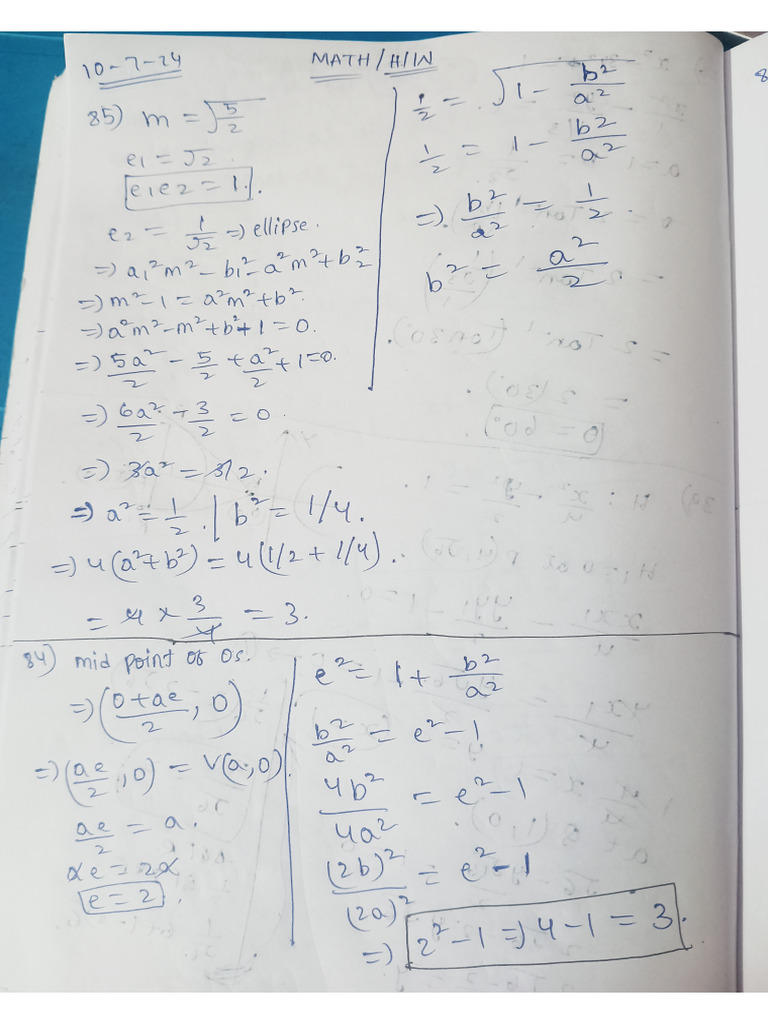 10-7-24
MATH/H/W
85) m = √5/2
e1 = √2.
e1e2 = 1.
e2 = 1/√2 => ellipse.
=> a1²m² - b1² = a²m² + b2²
=> m² - 1 = a²m² + b².
=> a²m² - m² + b² + 1 = 0.
=> 5a²/2 - 5/2 + a²/2 + 1 = 0.
=> 6a²/2 - 3/2 = 0.
=> 3a² = 3/2.
=> a² = 1/2. | b² = 1/4.
=> 4(a²+b²) = 4(1/2 + 1/4).
= 4 × 3/4 = 3.
1/2 = √1 - b²/a²
1/2 = 1 - b²/a²
=> b²/a² = 1/2.
b² = a²/2.
84) mid point of os.
=> (0+ae/2, 0)
=> (ae/2, 0) = V(a, 0)
ae/2 = a.
ae = 2a
e = 2.
e² = 1 + b²/a²
b²/a² = e² - 1
4b²/4a² = e² - 1
(2b)²/(2a)² = e² - 1
=> 2² - 1 => 4 - 1 = 3.